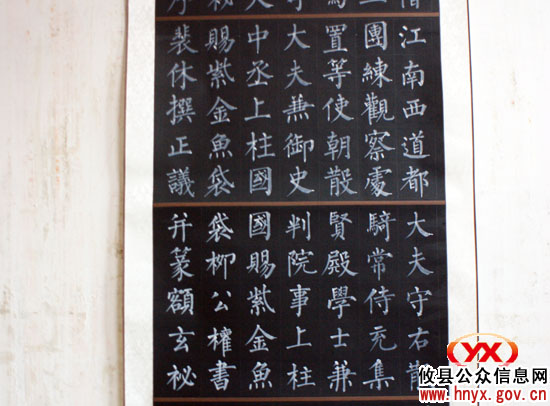 江南西道都
團練觀察處
置等使朝散
大夫兼御史
中丞上柱國
賜紫金魚袋
裴休撰正議
大夫守右散
騎常侍充集
賢殿學士兼
判院事上柱
國賜紫金魚
袋柳公權書
并篆額玄祕
YX
攸县公众信息网
www.hnyx.gov.cn